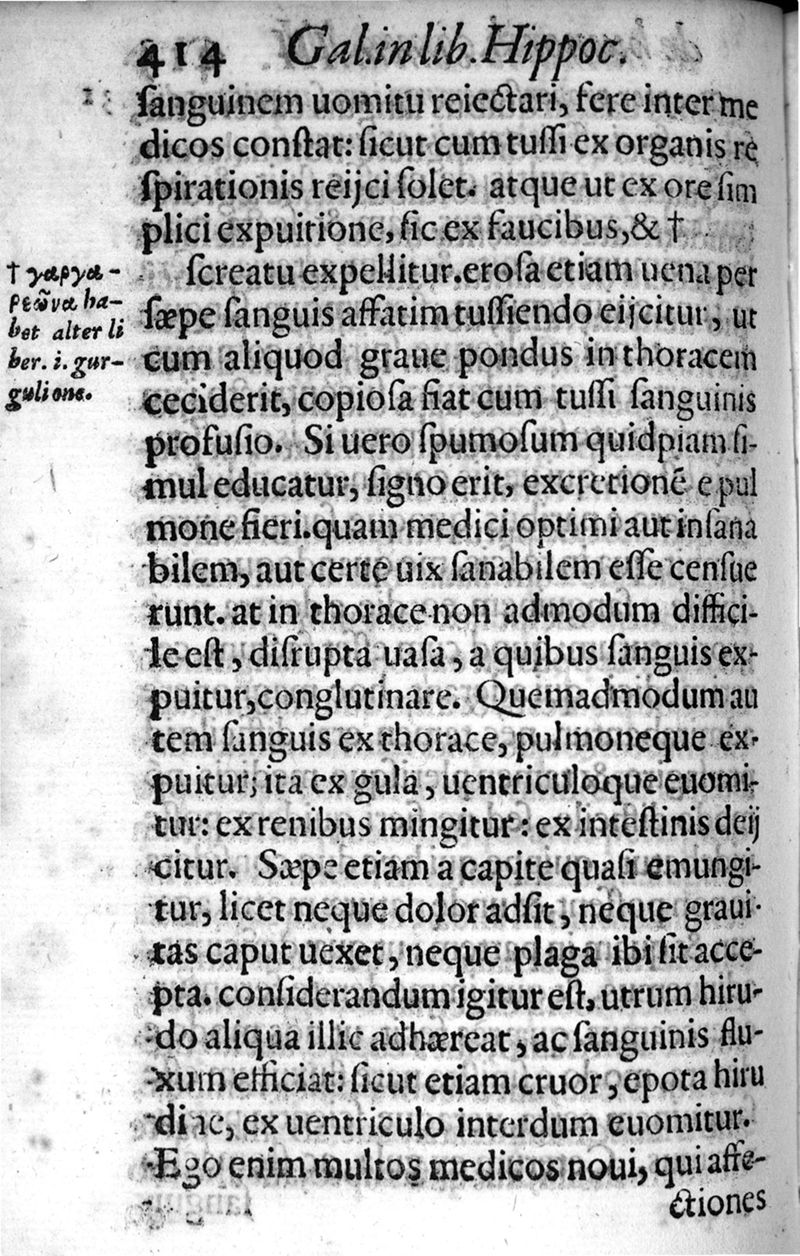 414 Gal.in lib.Hippoc.
ſanguinem uomitu reiectari, fere inter me
dicos conſtat: ſicut cum tuſſi ex organis re
ſpirationis reijci ſolet. atque ut ex ore ſim
plici expuitione, ſic ex faucibus,& †
ſcreatu expellitur.eroſa etiam uena per
ſæpe ſanguis affatim tuſſiendo eijcitur, ut
cum aliquod graue pondus in thoracem
ceciderit, copioſa fiat cum tuſſi ſanguinis
profuſio. Si uero ſpumoſum quidpiam ſi-
mul educatur, ſigno erit, excretionē e pul
mone fieri.quam medici optimi aut inſana
bilem, aut certe uix ſanabilem eſſe cenſue
runt. at in thorace non admodum diffici-
le eſt, diſrupta uaſa, a quibus ſanguis ex-
puitur,conglutinare. Quemadmodum au
tem ſanguis ex thorace, pulmoneque ex-
puitur; ita ex gula, uentriculoque euomi-
tur: ex renibus mingitur: ex inteſtinis deij
citur. Sæpe etiam a capite quaſi emungi-
tur, licet neque dolor adſit, neque graui-
tas caput uexet, neque plaga ibi ſit acce-
pta. conſiderandum igitur eſt, utrum hiru-
do aliqua illic adhæreat, ac ſanguinis flu-
xum efficiat: ſicut etiam cruor, epota hiru
dine, ex uentriculo interdum euomitur.
Ego enim multos medicos noui, qui affe-
ctiones
† γαργα-
ρεῶνα ha-
bet alter li
ber. i. gur-
gulione.